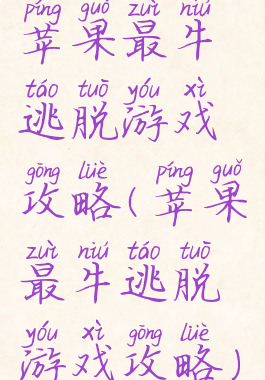 píng guǒ zuì niú
苹果最牛
táo tuō yóu xì
逃脱游戏
gōng lüè píng guǒ
攻略(苹果
zuì niú táo tuō
最牛逃脱
yóu xì gōng lüè
游戏攻略)